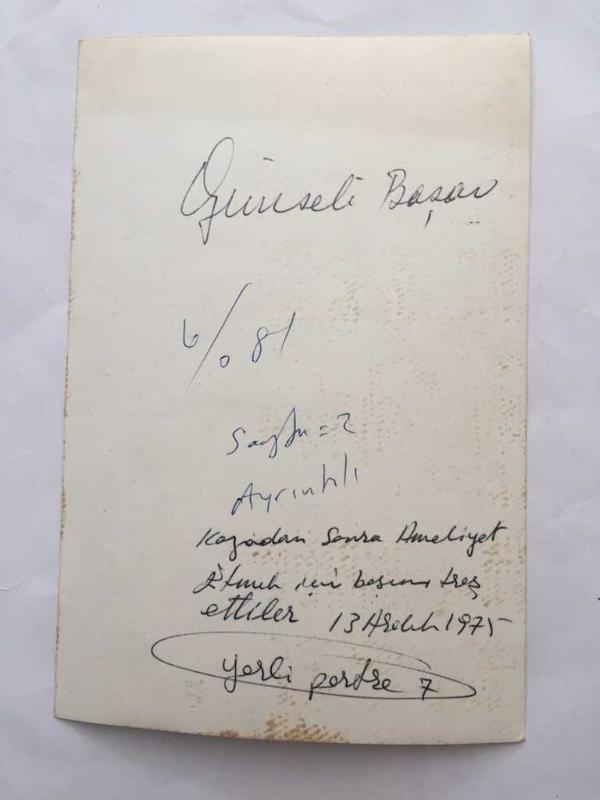 Günseli Başar
6/0 81
Sayfa = 2
Ayrıntılı
Kazadan Sonra Ameliyet
Etmek için başımı traş
ettiler 13 Aralık 1975
yerli perdre 7